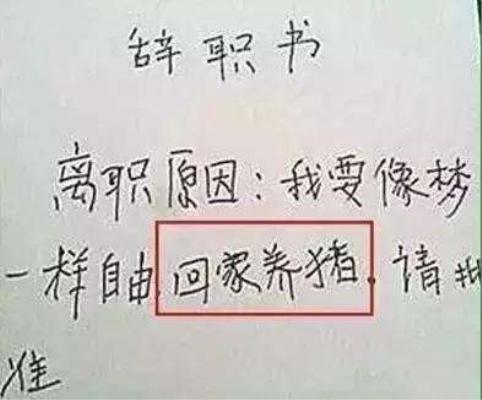 辞职书
离职原因：我要像梦
一样自由，回家养猪．请批
准